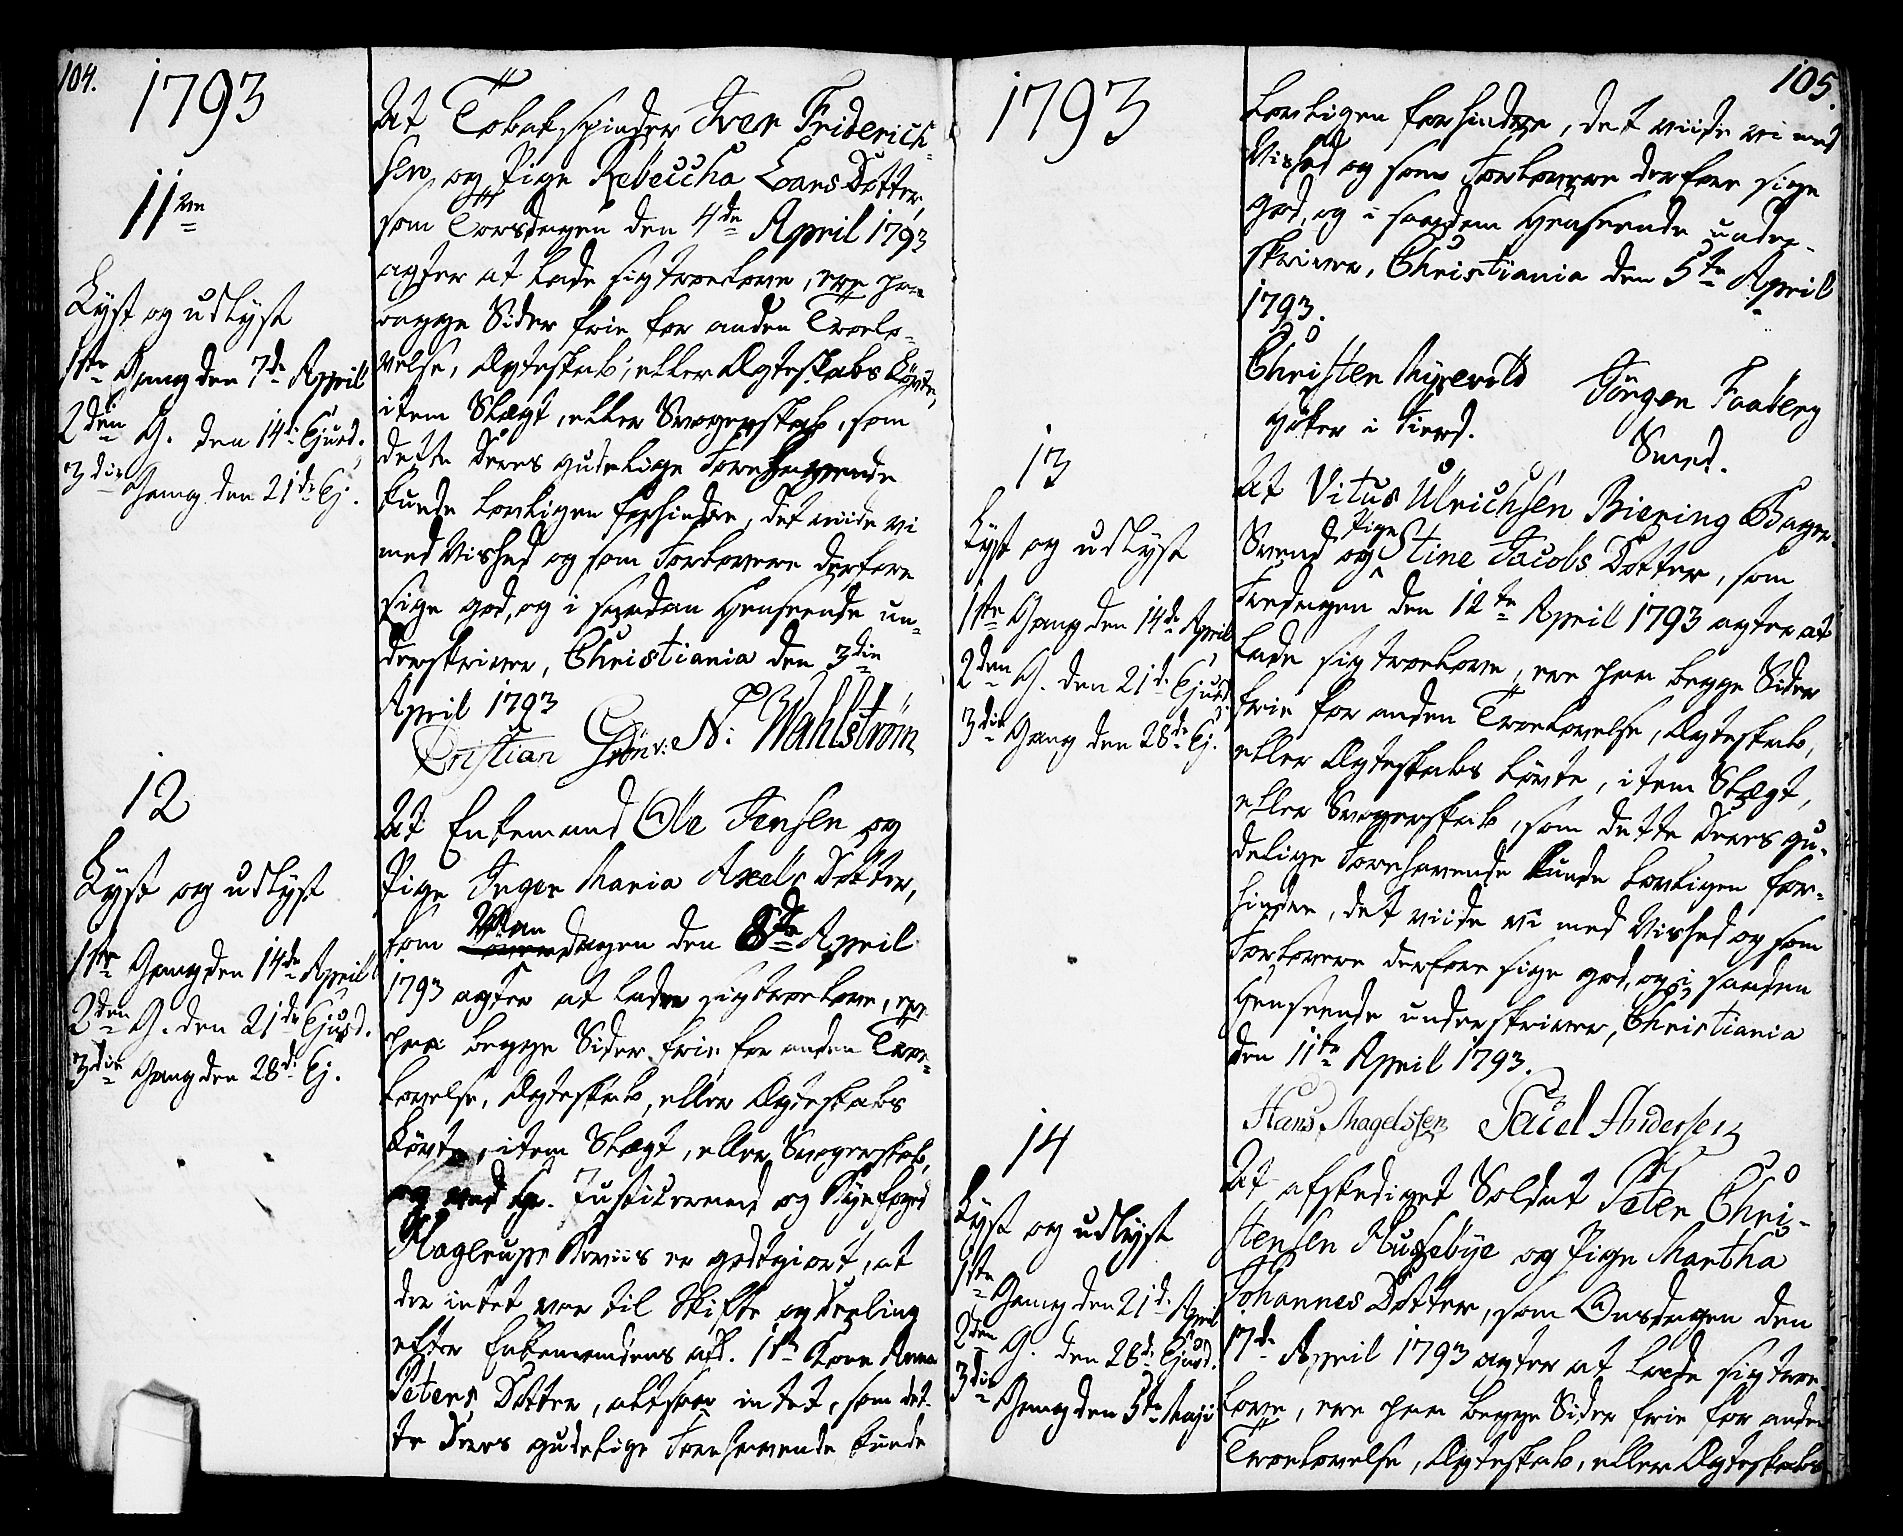 104.
1793
11te
Lyst og udlyst
1ste Gang den 7de April
2den G. den 14de Ejusd.
3die Gang den 21de Ej.
12
Lyst og udlyst
1ste Gang den 14de April
2den G. den 21de Ejusd.
3die Gang den 28de Ej.
At Tobakspinder Iver Friderich-
sen og Pige Rebeccha Lars Dotter,
som Torsdagen den 4de April 1793
agter at lade sig troelove, ere paa
begge Sider frie for anden Troelo-
velse, Ægteskab, eller Ægteskabs Løvte,
item Slægt, eller Svogerskab, som
dette Deres gudelige Forehavende
kunde lovligen forhindre, det viide vi
med Vished og som Forlovere derfore
sige god, og i saadan Henseende un-
derskriver, Christiania den 3die
April 1793
Cristian Grönv: N: Wahlstrøm
At Enkemand Ole Jensen og
Pige Inger Maria Axels Dotter,
som Man
dagen den 8de April
1793 agter at lade sig troelove, ere
paa begge Sider frie for anden Troe-
lovelse, Ægteskab, eller Ægteskabs
Løvte, item Slægt, eller Svogerskab,
og ved Hr. Justitsraad og Byefoged
Hagerups Beviis er godtgiort, at
der intet var til Skifte og Deeling
efter Enkemandens afd. 1ste Kone Anna
Peters Dotter, altsaa intet, som det-
te Deres gudelige Forehavende kunde
1793
13
Lyst og udlyst
1ste Gang den 14de April
2den G. den 21de Ejusd.
3die Gang den 28de Ej.
14
Lyst og udlyst
1ste Gang den 21de April
2den G. den 28de Ejusd.
3die Gang den 5te Maji
105.
lovligen forhindre, det viide vi med
Vished og som Forlovere derfore sige
god, og i saadan Henseende under-
skriver, Christiania den 5te April
1793.
Christen Myrevold Jörgen Faaberg
Høker i Fierd. Smed.
At Vitus Ulrichsen Biering Bager-
Pige
Svend og Stine Jacobs Dotter, som
Fredagen den 12te April 1793 agter at
lade sig troelove, ere paa begge Sider
frie for anden Troelovelse, Ægteskab,
eller Ægteskabs Løvte, item Slægt,
eller Svogerskab, som dette Deres gu-
delige Forehavende kunde lovligen for-
hindre, det viide vi med Vished og som
Forlovere derfore sige god, og i saadan
Henseende underskriver, Christiania
den 11te April 1793.
Hans Magelssen Pauel Andersen
At afskediget Soldat Peter Chri-
stensen Husebÿe og Pige Martha
Johannes Dotter, som Onsdagen den
17de April 1793 agter at lade sig troe-
love, ere paa begge Sider frie for anden
Troelovelse, Ægteskab, eller Ægteskabs